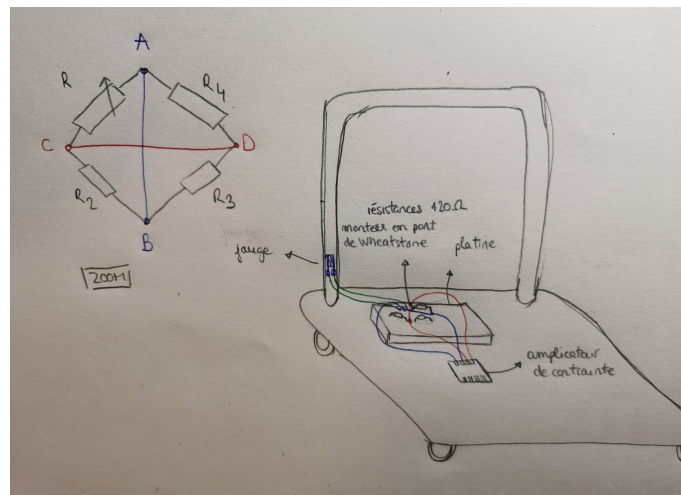 A
R
R4
C
D
R2
R3
B
ZOOM
jauge
résistances 120Ω
montées en pont
de Wheatstone
platine
amplicateur
de contrainte